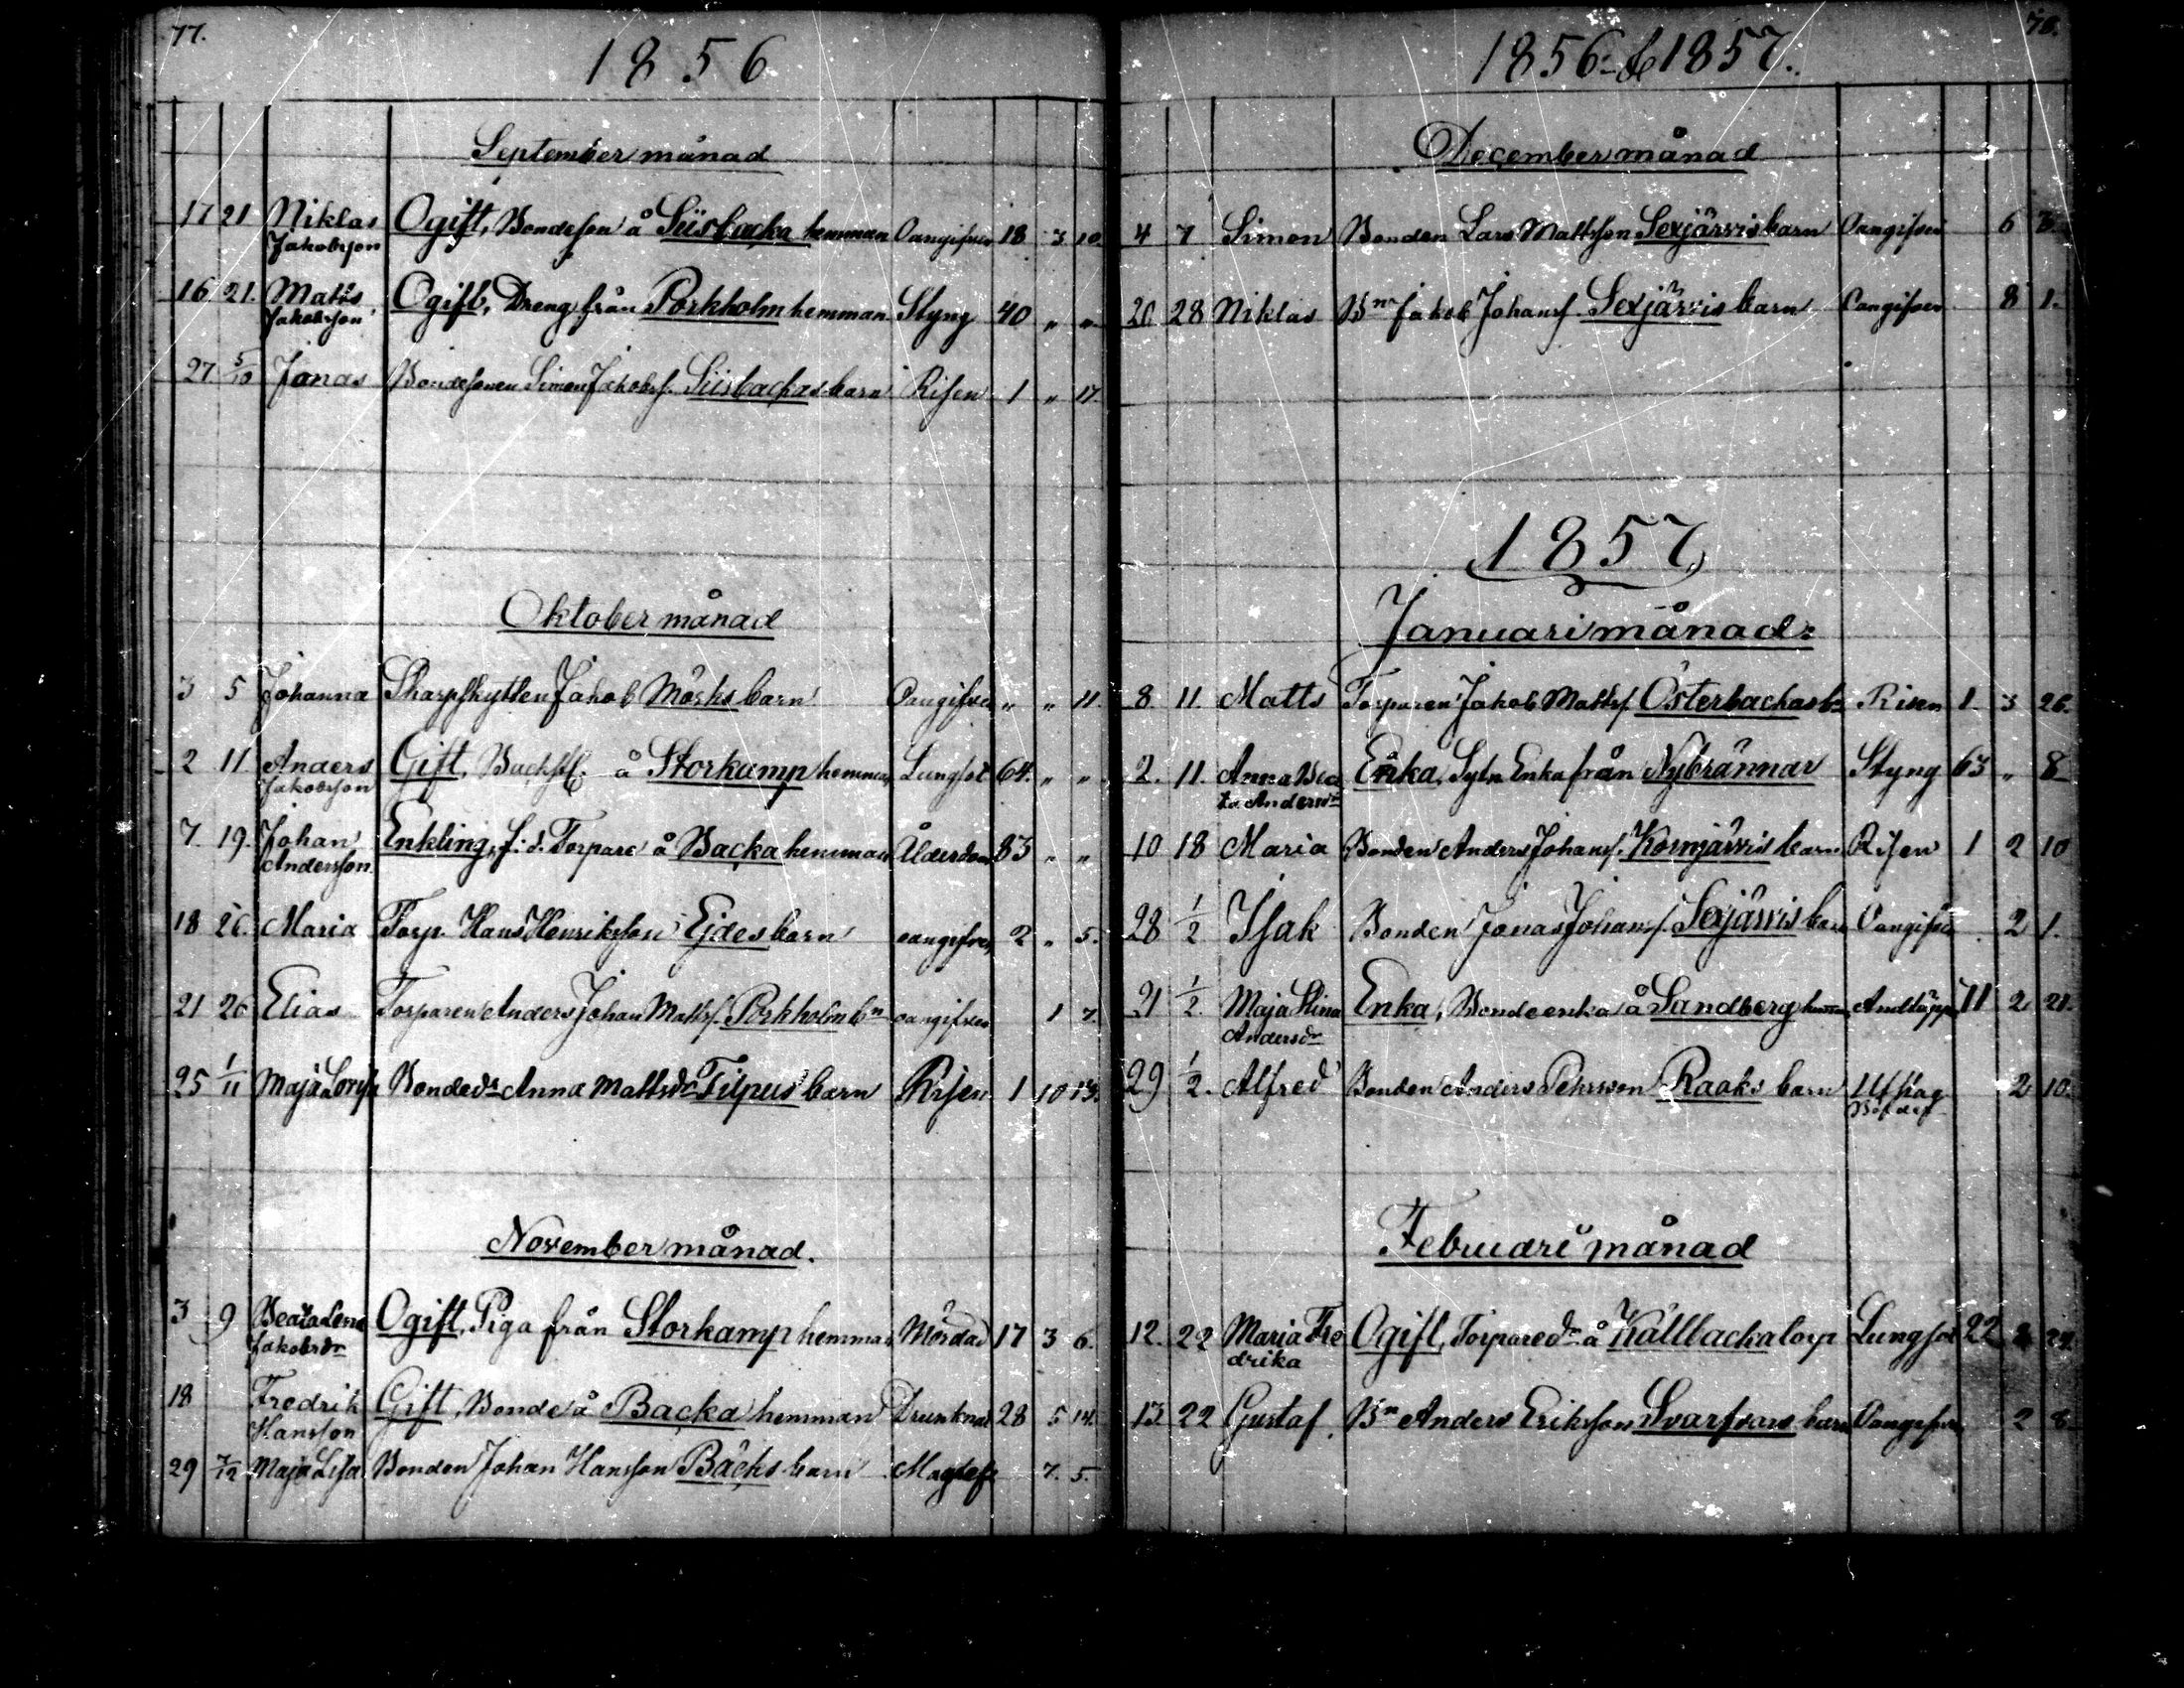 77.
1856
September månad
17 21 Niklas Ogift, Bondeson å Siisbacka hemman Oangifven 18 3 10.
Jakobsson
16 21. Matts Ogift, Dreng från Porkholm hemman Styng 40 " "
Jakobsson
27 5/10 Jonas Bondesonen Simon Jakobss. Siisbackas barn Risen 1 " 17.
Oktober månad
3 5 Johanna Skarpskytten Jakob Mörks barn Oangifven " " 11.
2 11 Anders Gift, å Storkamp hemman Lungsot 64. " "
Jakobsson
7. 19. Johan Enkling, f.d. Torpare å Backa hemman Ålderdom 83 " "
Andersson
18 26. Maria Torp. Hans Henriksson Ejdes barn oangifven 2 " 5.
21 26 Elias Torparen Anders Johan Matts. Porkholm bn oangifven 1 7.
25 1/11 Maja Lovisa Bondedr Anna Mattsdr Tilpus barn Risen 1 10 13.
November månad.
3 9 Beata Lena Ogift, Piga från Storkamp hemman Mördad 17 3 6.
Jakobsdr
18 Fredrik Gift, Bonde å Backa hemman Drunknad 28 5 14.
Hansson
29 7/12 Maja Lisa Bonden Johan Hansson Bäcks barn Magtorsk 7. 5.
78.
1856 & 1857.
December månad
4 7 Simon Bonden Lars Mattsson Sexjärvis barn Oangifven 6 3
20 28 Niklas Bn Jakob Johanss. Sexjärvis barn Oangifven 8 1.
1857
Januari månad
8 11. Matts Torparen Jakob Matts. Österbackas bn Risen 1. 3 26.
2. 11. Anna Bea Enka, Sytn. Enka från Nybrännar Styng 63 " 8
ta Andersdr
10 18 Maria Bonden Anders Johans. Kornjärvis barn Risen 1 2 10
28 1/2 Isak Bonden Jonas Johans. Sexjärvis barn Oangifven 2 1.
21 1/2. Maja Stina Enka, Bondeenka å Sandberg hemman Andtäppa 71 2 21.
Andersdr
29 1/2. Alfred Bonden Anders Pehrsson Raaks barn 2 10.
Februari månad
12. 22 Maria Fre Ogift, Torparedr å Källbacka torp Lungsot 22 24.
drika
13 22 Gustaf Bn Anders Eriksson Svarfvars barn Oangifven 2 8